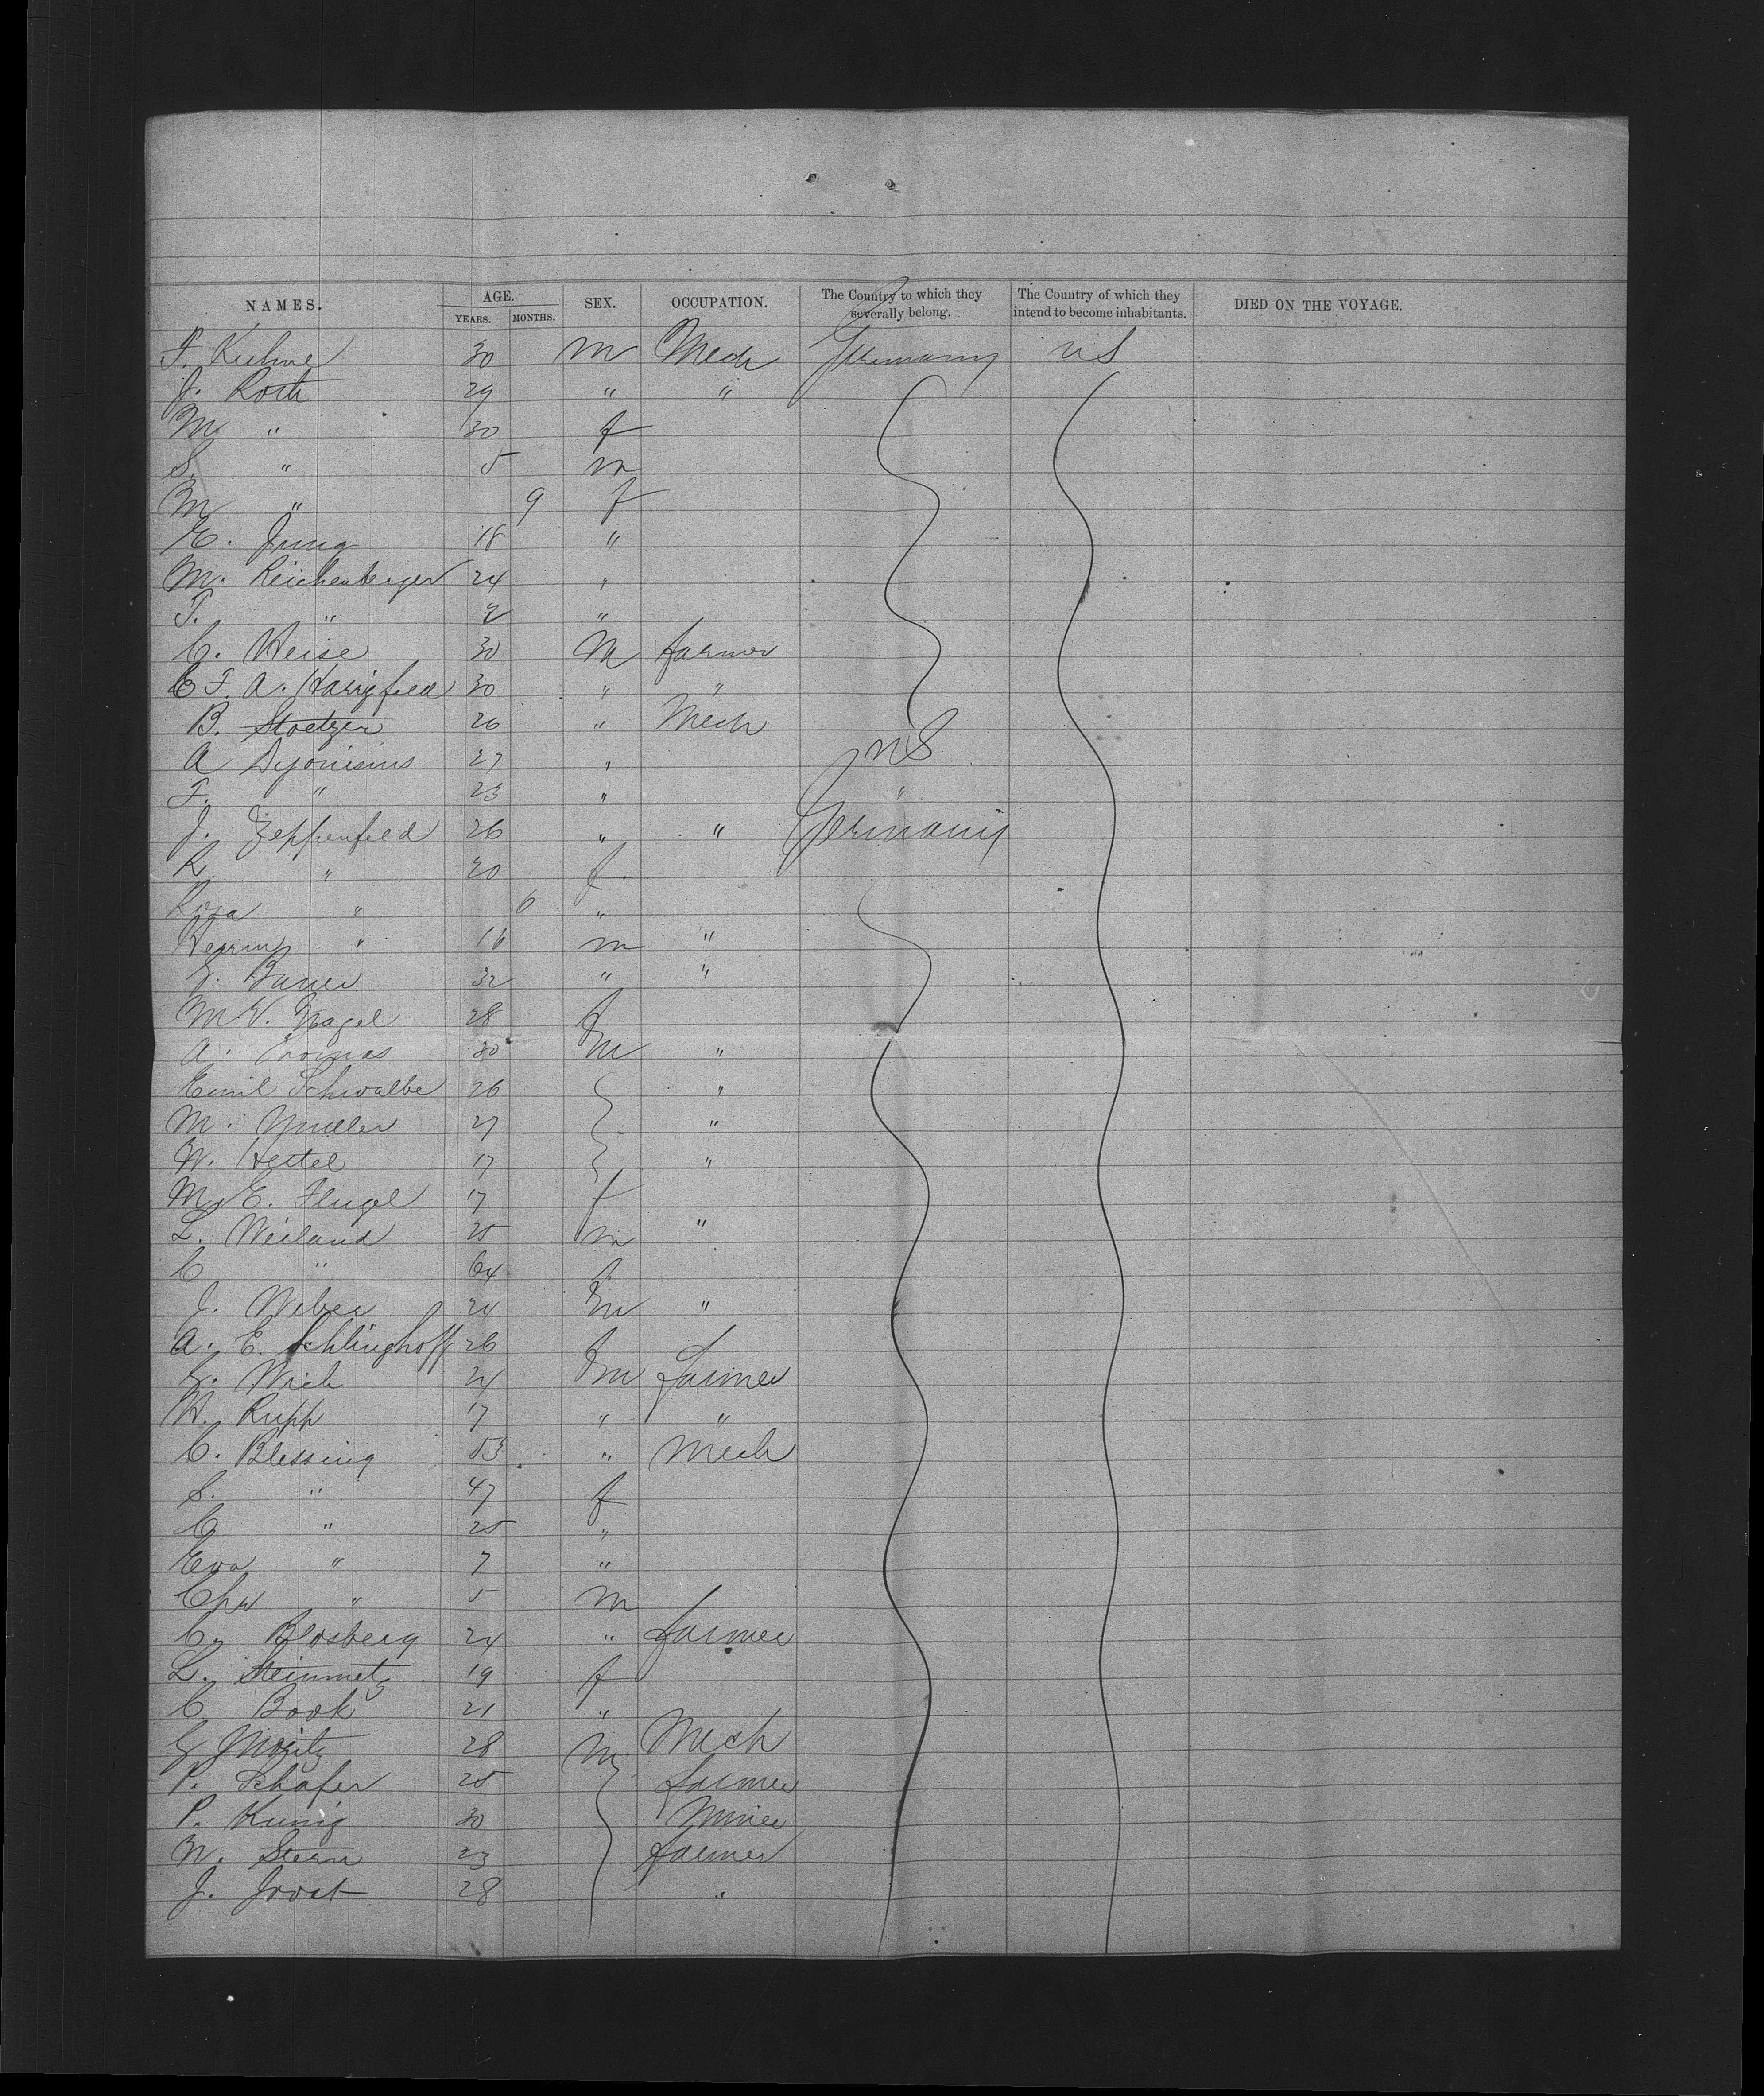 NAMES. AGE. SEX. OCCUPATION. The Country to which they severally belong. The Country of which they intend to become inhabitants. DIED ON THE VOYAGE.
YEARS. MONTHS.
F. Kuhne 30 m Mech Germany US
J. Roth 29 " "
M " 30 f
S. " 5 m
M " 9 f
E. Jung 18 "
M. Reichenberger 24 "
T. " 2 "
C. Weise 30 M farmer
C F. A. 30 " "
B. Stoetzer 26 " Mech
A Dyonisius 27 " US
F. " 23 " "
J. Zeppenfeld 26 " " Germany
R " 20 f
" 6 "
" 16 m "
Bauer 32 " "
M W. Nagel 28 f
A. Thomas 30 m "
Emil Schwalbe 26 "
M. Muller 27 "
W. Hertel 17 "
M. E. Flugel 17 f
L. Weiland 25 m "
C " 64 f
J. Weber m "
A. E. Schlinghoff 26 f
24 m farmer
H. Rupp 17 " "
C. Blessing 53 " Mech
S. " 47 f
C " 25 "
Eva " 7 "
Chr " 5 m
C. Blosberg 24 " farmer
L. Steinmetz 19 f
C Book 21 "
G Moritz 28 m Mech
P. Schafer 25 farmer
P. 30 Miner
W. Stern 23 farmer
J. Joost 28 "